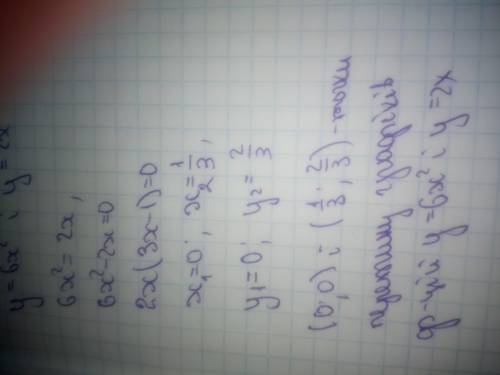 y = 6x² i y = 2x
6x² = 2x,
6x²-2x=0
2x(3x-1)=0
x₁=0; x₂=1/3,
y₁=0; y₂=2/3
(0;0) i (1/3; 2/3) - точки
перетину графіків
ф-цій y=6x² i y=2x